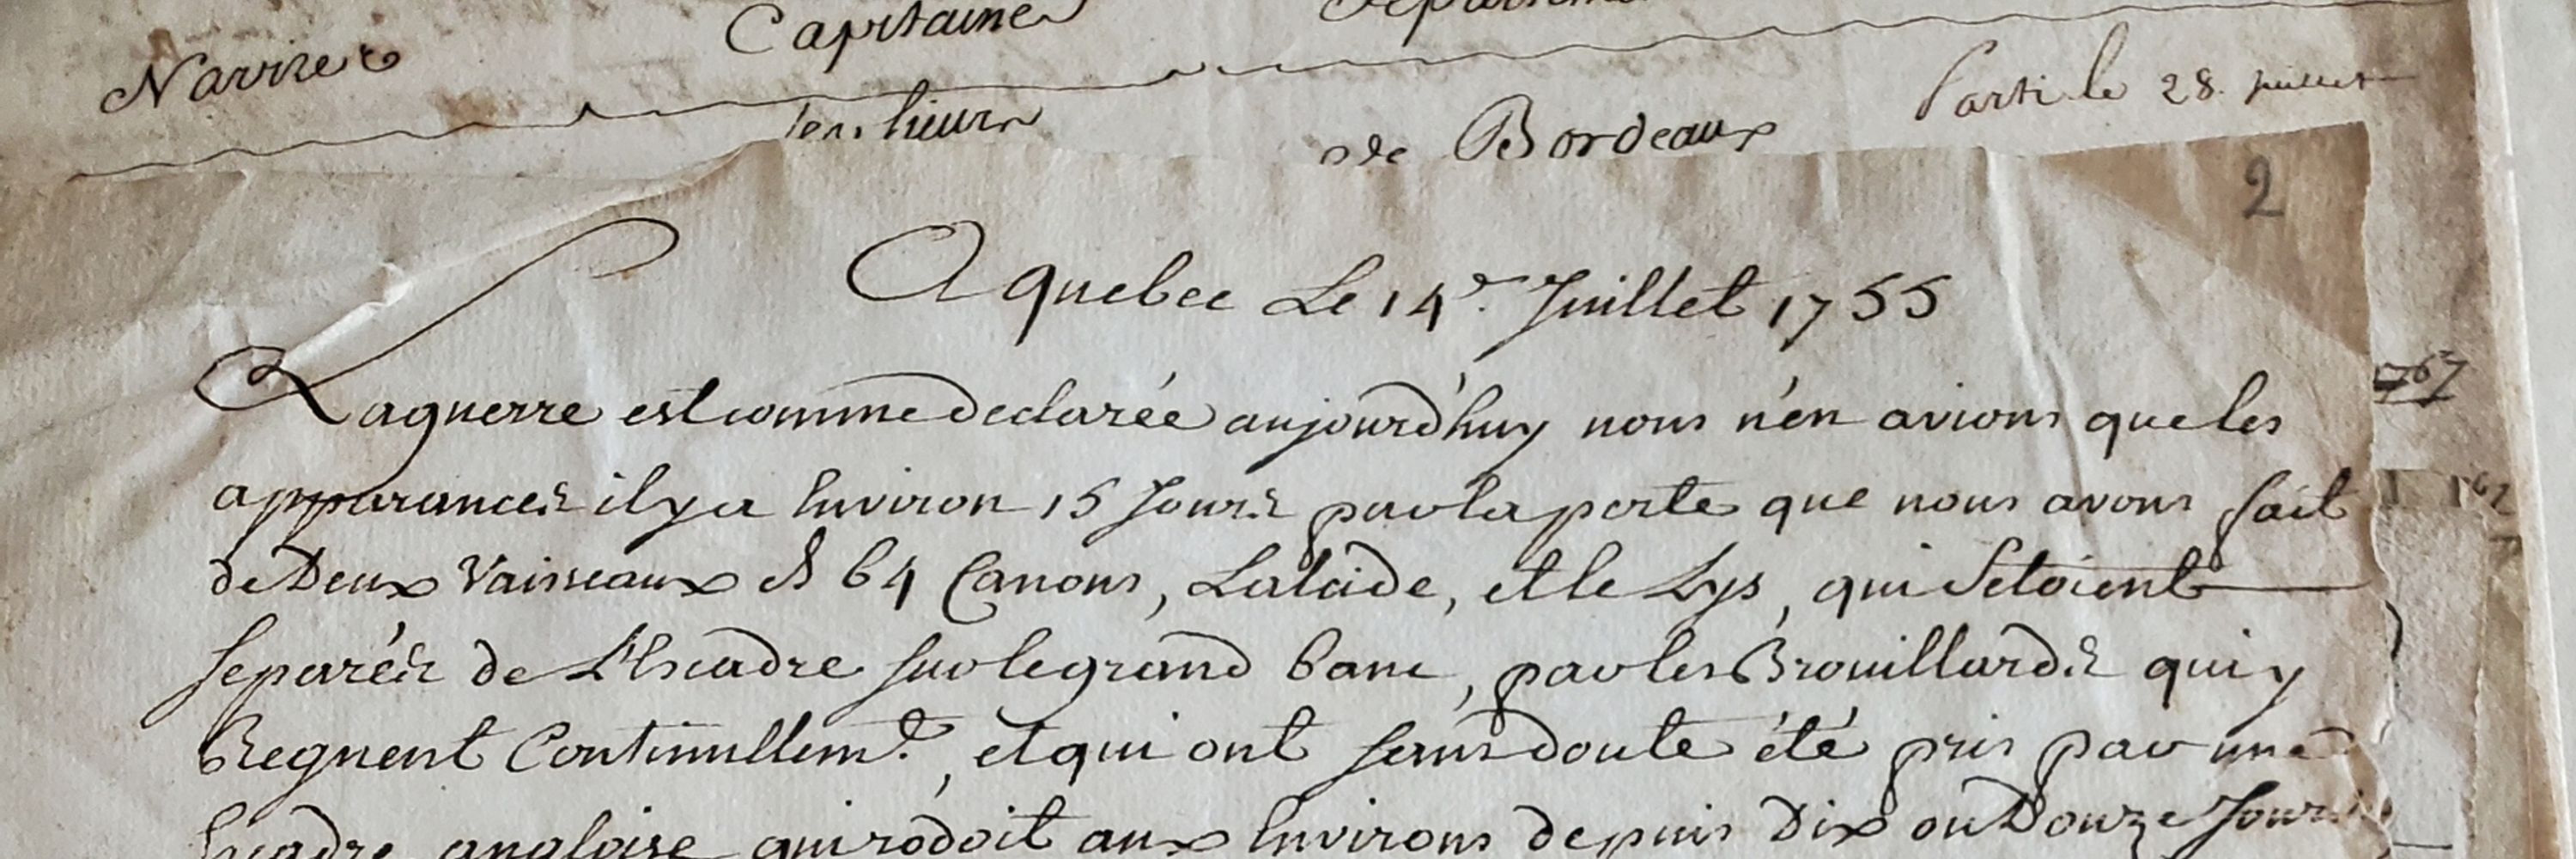 Navire Capitaine
Parti le 28. juillet
de Bordeaux
2
A quebec Le 14e. Juillet 1755
La guerre est comme declarée aujourd'huy nous n'en avions que les
apparances il y a Environ 15 Jours par la perte que nous avons fait
de Deux Vaisseaux de 64 Canons, Lalcide, et le Lys, qui Setoient
Separés de L'Escadre sur le grand banc, par les Brouillards qui y
Regnent Continullemt., et qui ont sans doute été pris par une
Escadre angloise qui rodoit aux Environs depuis Dix ou Douze Jours